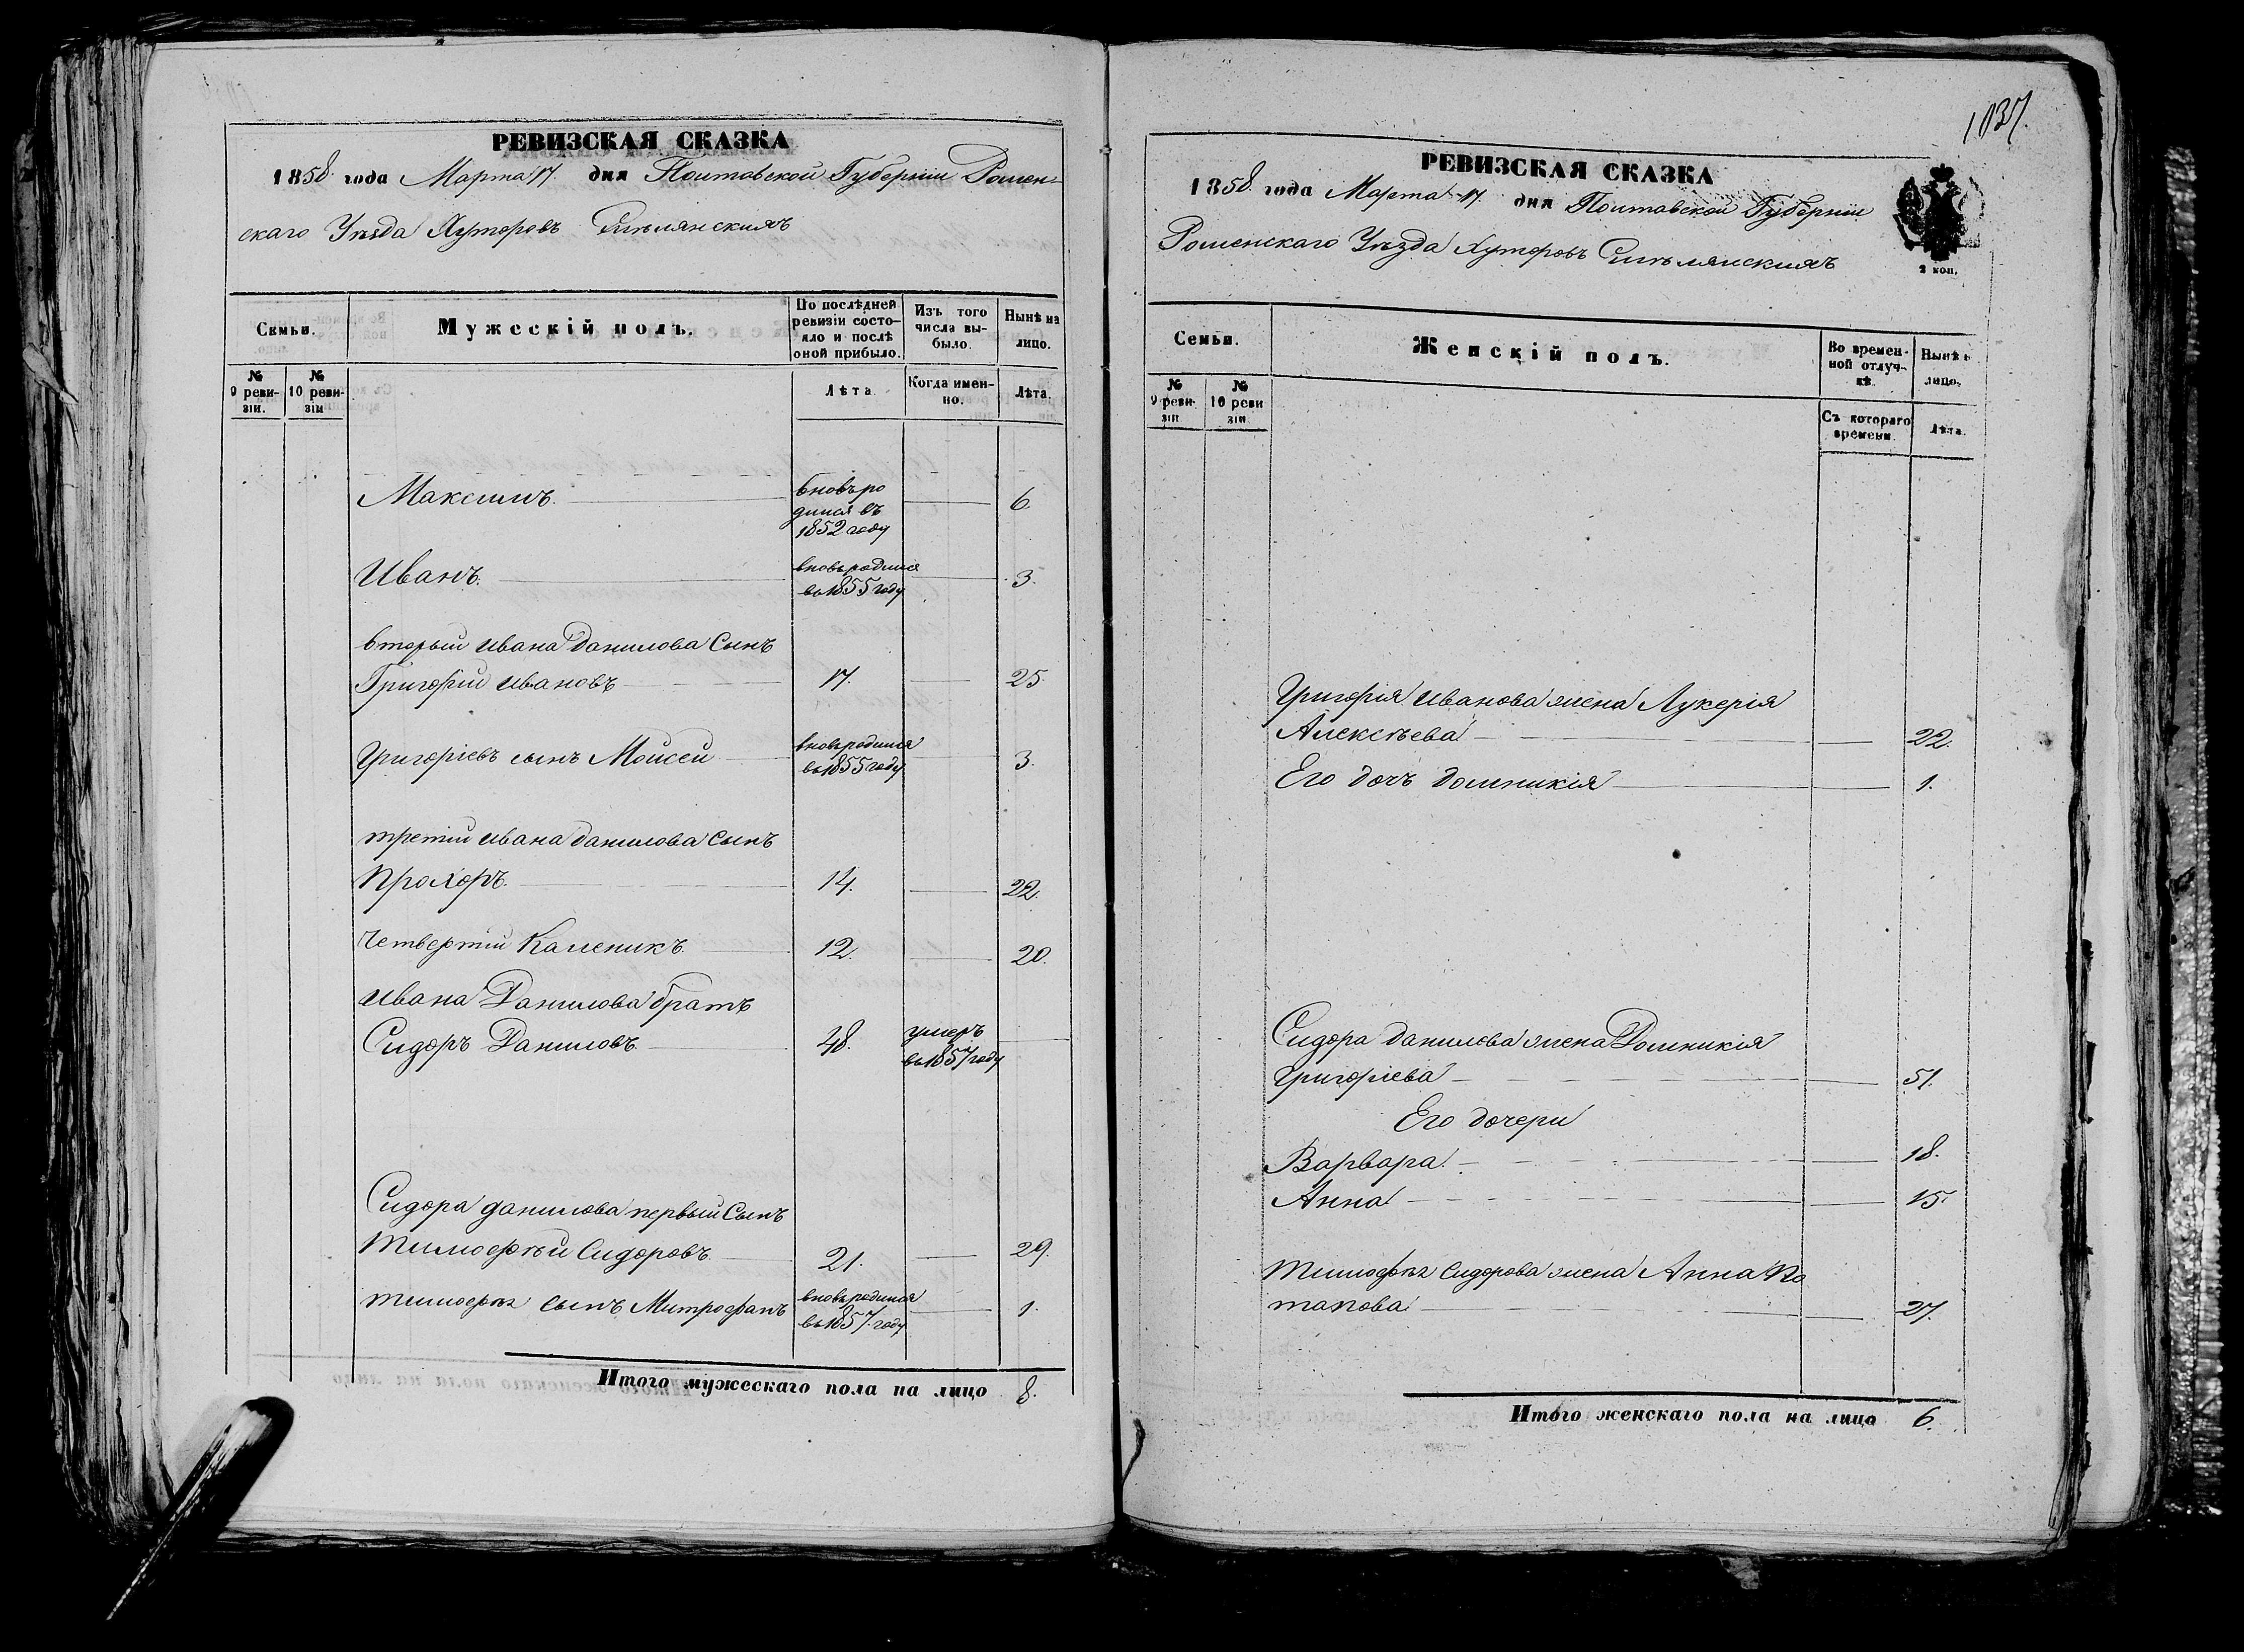 РЕВИЗСКАЯ СКАЗКА
1858 года Марта 17 дня Полтавской Губерніи Ромен-
скаго Уѣзда Хуторовъ
Семьи.
Мужескій полъ.
По послѣдней ревизіи состо-яло и послѣ оной прибыло.
Изъ того числа вы-было.
Нынѣ на лицо.
№ 9 реви-зіи.
№ 10 реви-зіи
Лѣта
Когда имен-но.
Лѣта.
Максимъ. вновь ро
дился въ 6.
1852 году
Иванъ. вновь родился
въ 1855 году 3.
вторый Ивана Данилова Сынъ
Григорій Ивановъ 17. 25.
Григоріевъ сынъ Мойсей вновь родился
въ 1855 году 3.
третій Ивана Данилова Сынъ
Прохоръ. 14. 22.
Четвертій Каленикъ 12. 20.
Ивана Данилова братъ
Сидоръ Даниловъ 48. умеръ
въ 1857 году
Сидора Данилова первый Сынъ
Тимофѣй Сидоровъ 21. 29.
Тимофѣя сынъ Митрофанъ вновь родился
въ 1857 году 1.
Итого мужескаго пола на лицо 8.
1037.
РЕВИЗСКАЯ СКАЗКА
1858 года Марта 17. дня Полтавской Губерніи
Роменскаго Уѣзда Хуторовъ
2 коп.
Семьи.
Женскій полъ.
Во времен-ной отлуч-кѣ.
Нынѣ н лицо.
№ 9 реви-зіи
№ 10 реви зіи
Съ котораго времени.
Лѣта.
Григорія Иванова жена Лукерія
Алексѣева 22.
Его дочь Домникія 1.
Сидора Данилова жена Домникія
Григоріева 51.
Его дочери
Варвара. 18.
Анна 15.
Тимофѣя Сидорова жена Анна По
тапова 27.
Итого женскаго пола на лицо 6.